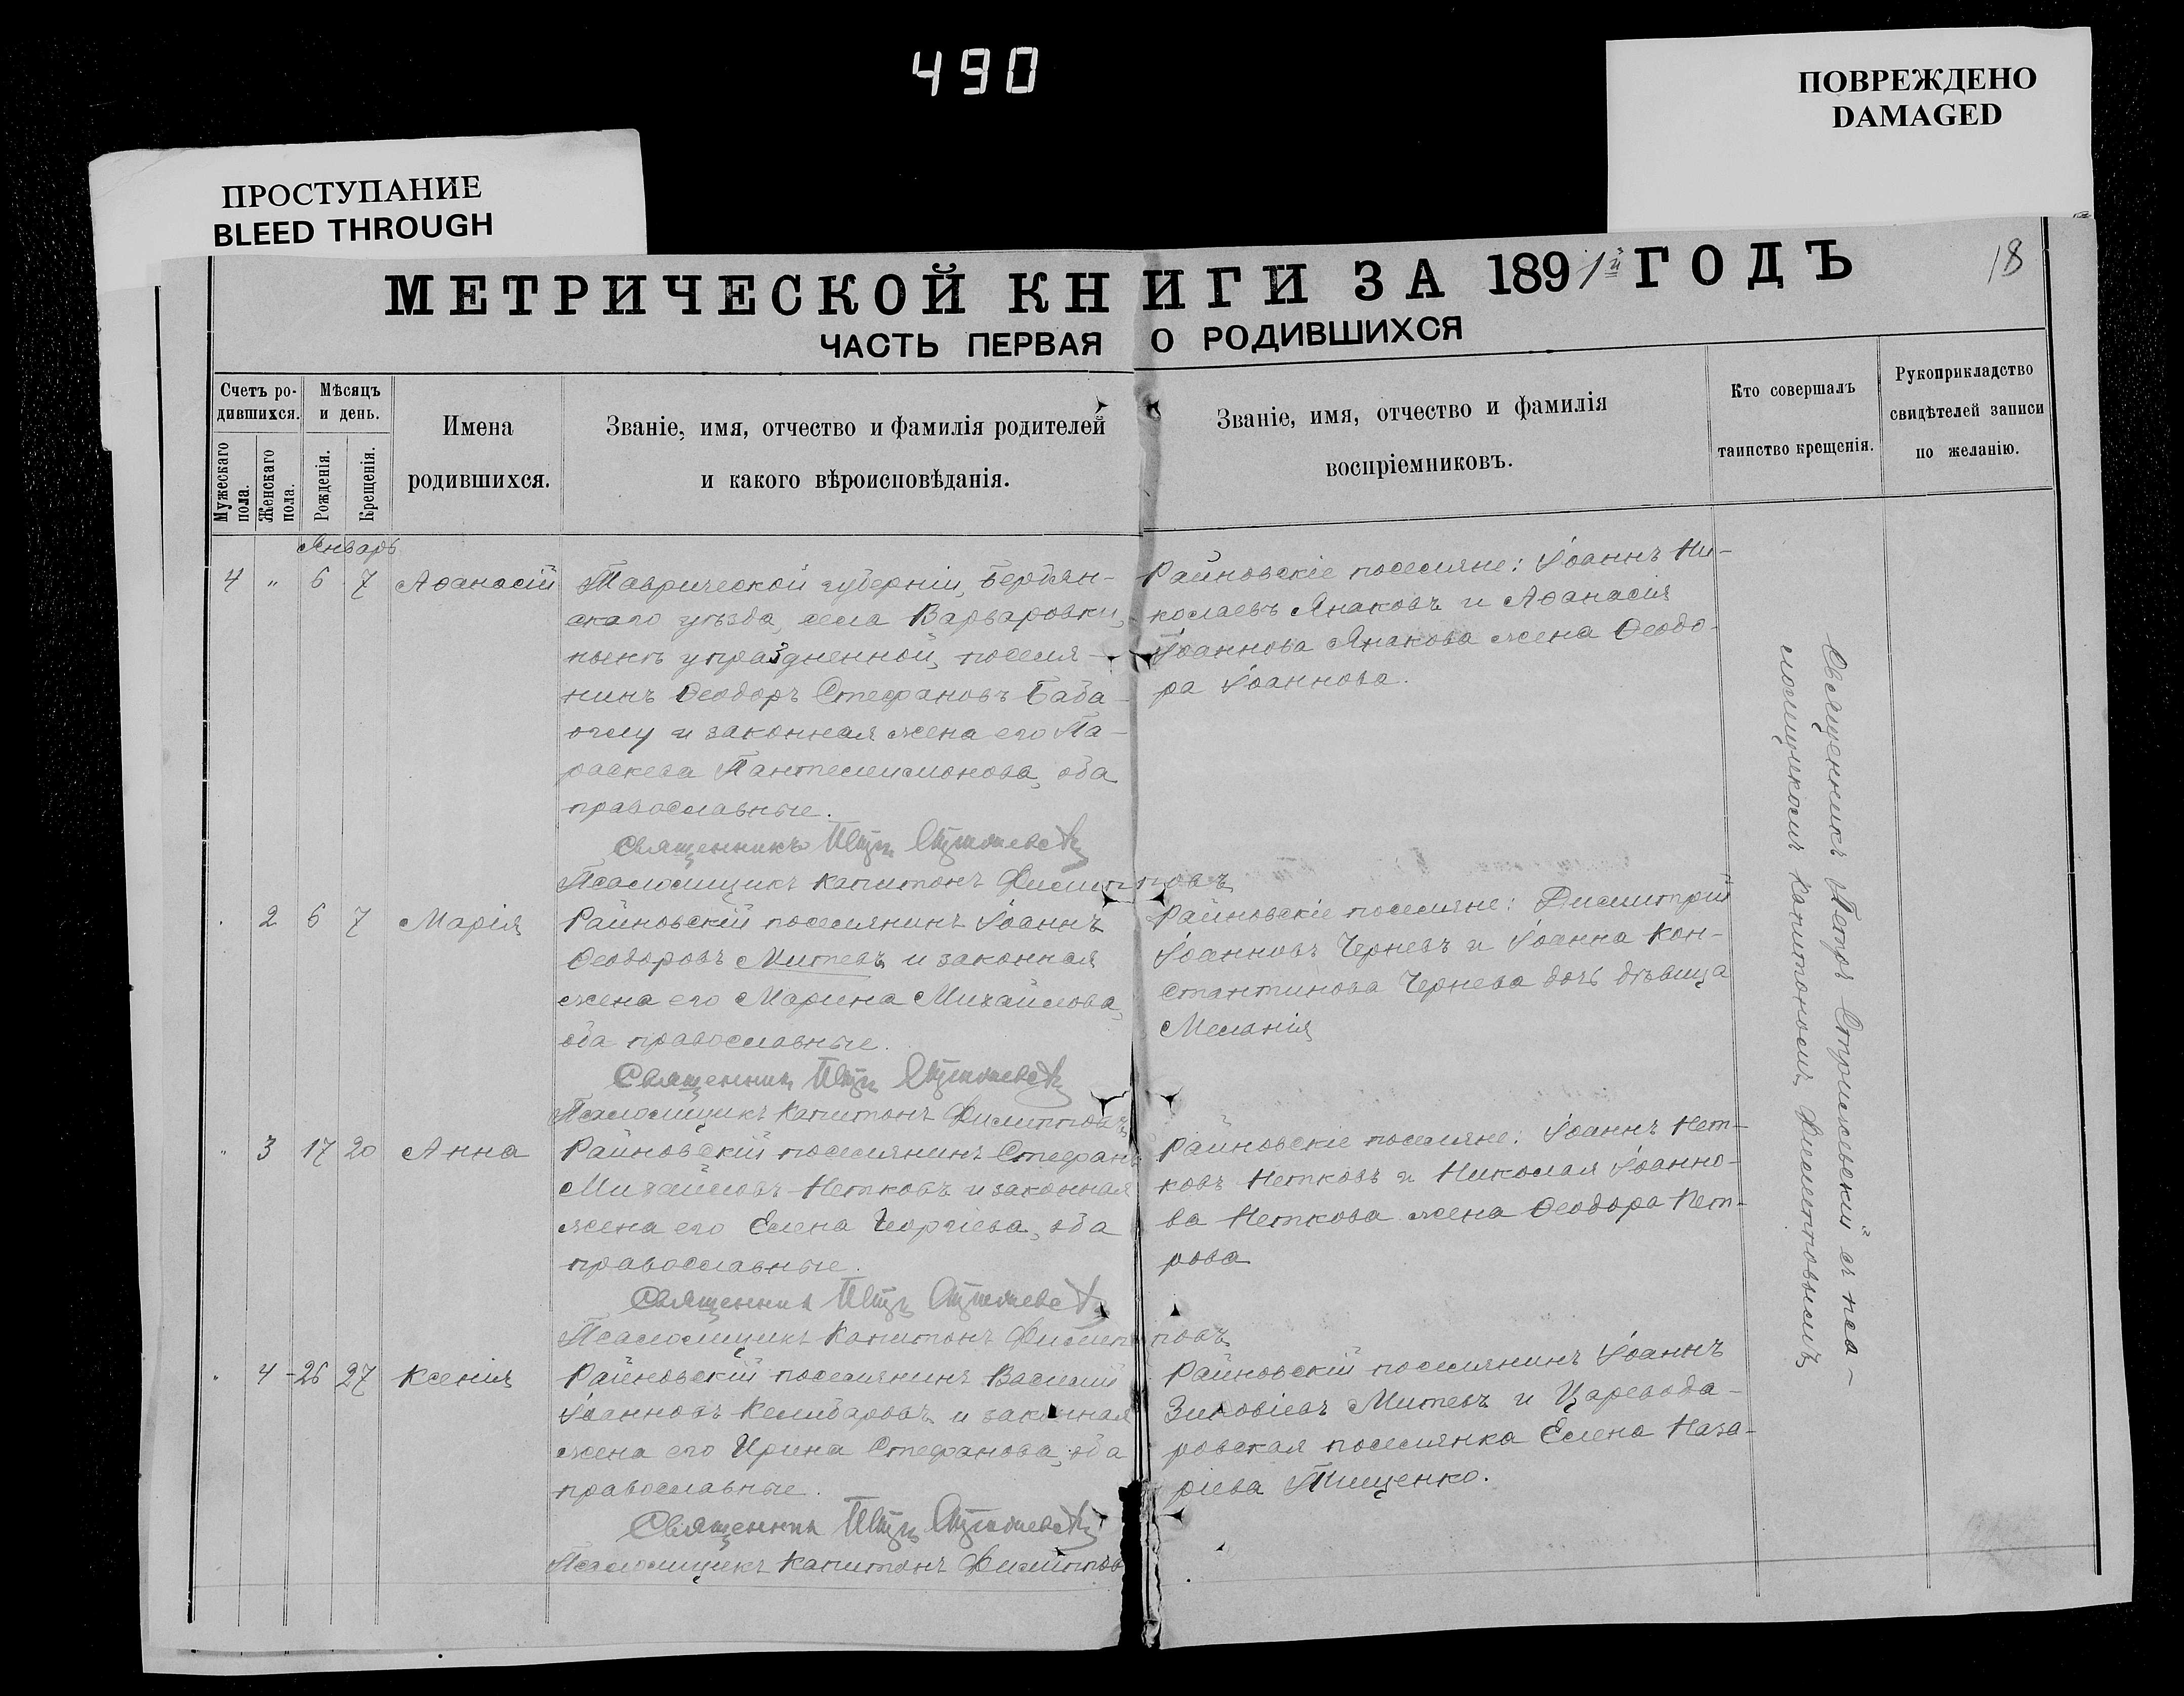 490
ПОВРЕЖДЕНО
DAMAGED
ПРОСТУПАНИЕ
BLEED THROUGH
МЕТРИЧЕСКОЙ КНИГИ ЗА 1891й ГОДЪ
18
ЧАСТЬ ПЕРВАЯ О РОДИВШИХСЯ
Счетъ ро-
дившихся.
Мужескаго
пола.
Женскаго
пола.
Мѣсяцъ
и день.
Рожденія.
Крещенія.
Имена
родившихся.
Званіе, имя, отчество и фамилія родителей
и какого вѣроисповѣданія.
Званіе, имя, отчество и фамилія
воспріемниковъ.
Кто совершалъ
таинство крещенія.
Рукоприкладство
свидѣтелей записи
по желанію.
Январь
4 " 6 7 Аѳанасій
Таврической губерніи, Бердян-
скаго уѣзда, села Варваровки,
нынѣ упраздненной, поселя-
нинъ Ѳеодоръ Стефановъ Баба-
оглу и законная жена его Па-
раскева Пантелеимонова, оба
православные.
Священникъ Петръ
Псаломщикъ Капитонъ Филипповъ
Райновскіе поселяне: Іоаннъ Ни-
колаевъ Янаковъ и Аѳанасія
Іоаннова Янакова жена Ѳеодо-
ра Іоаннова.
2 6 7 Марія
Райновскій поселянинъ Іоаннъ
Ѳеодоровъ Митевъ и законная
жена его Марина Михайлова,
оба православные.
Священникъ Петръ
Псаломщикъ Капитонъ Филипповъ
Райновскіе поселяне: Димитрій
Іоанновъ Черневъ и Іоанна Кон-
стантинова Чернева дочь дѣвица
Меланія
" 3 17 20 Анна
Райновскій поселянинъ Стефанъ
Михайловъ Нетковъ и законная
жена его Елена Георгіева, оба
православные.
Священникъ Петръ
Псаломщикъ Капитонъ Филипповъ
Райновскіе поселяне: Іоаннъ Нет-
ковъ Нетковъ и Николая Іоанно-
ва Неткова жена Ѳеодора Пет-
рова
4 26 27 Ксенія
Райновскій поселянинъ Василій
Іоанновъ Келибаровъ и законная
жена его Ирина Стефанова, оба
православные.
Священникъ Петръ
Псаломщикъ Капитонъ Филиппов
Райновскій поселянинъ Іоаннъ
Зиновіевъ Митевъ и Цареводa-
ровская поселянка Елена Наза-
ріева Тищенко.
Священникъ Петръ съ пса-
ломщикомъ Капитономъ Филипповымъ